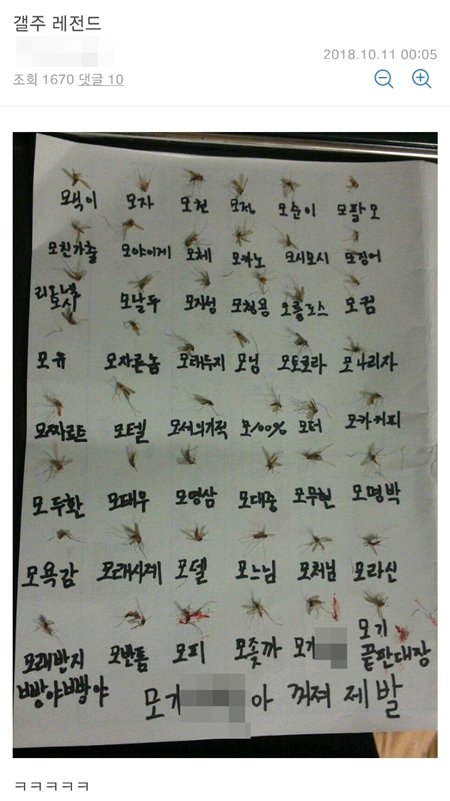 갤주 레전드
2018.10.11 00:05
조회 1670 댓글 10
모싹이 모자 모헌 모정 모순이 모팔모
모친가출 모야이게 모체 모카노 모시모시 모징어
리오넬모시 모날두 모지성 모청용 모를로스 모컴
모유 모자른놈 모태두지 모닝 모토로라 모나리자
모짜로트 모텔 모세의기적 모100% 모터 모카커피
모두환 모태우 모영삼 모대중 모무현 모명박
모욕감 모래시계 모델 모느님 모처님 모라신
모래반지 빵야빵야 모반톰 모피 모좃까 모기 모기 끝판대장
모기 아 꺼져 제발
ㅋㅋㅋㅋㅋ